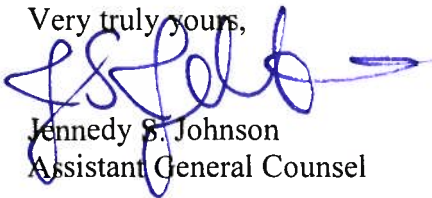 Very truly yours,
Jennedy S. Johnson
Assistant General Counsel